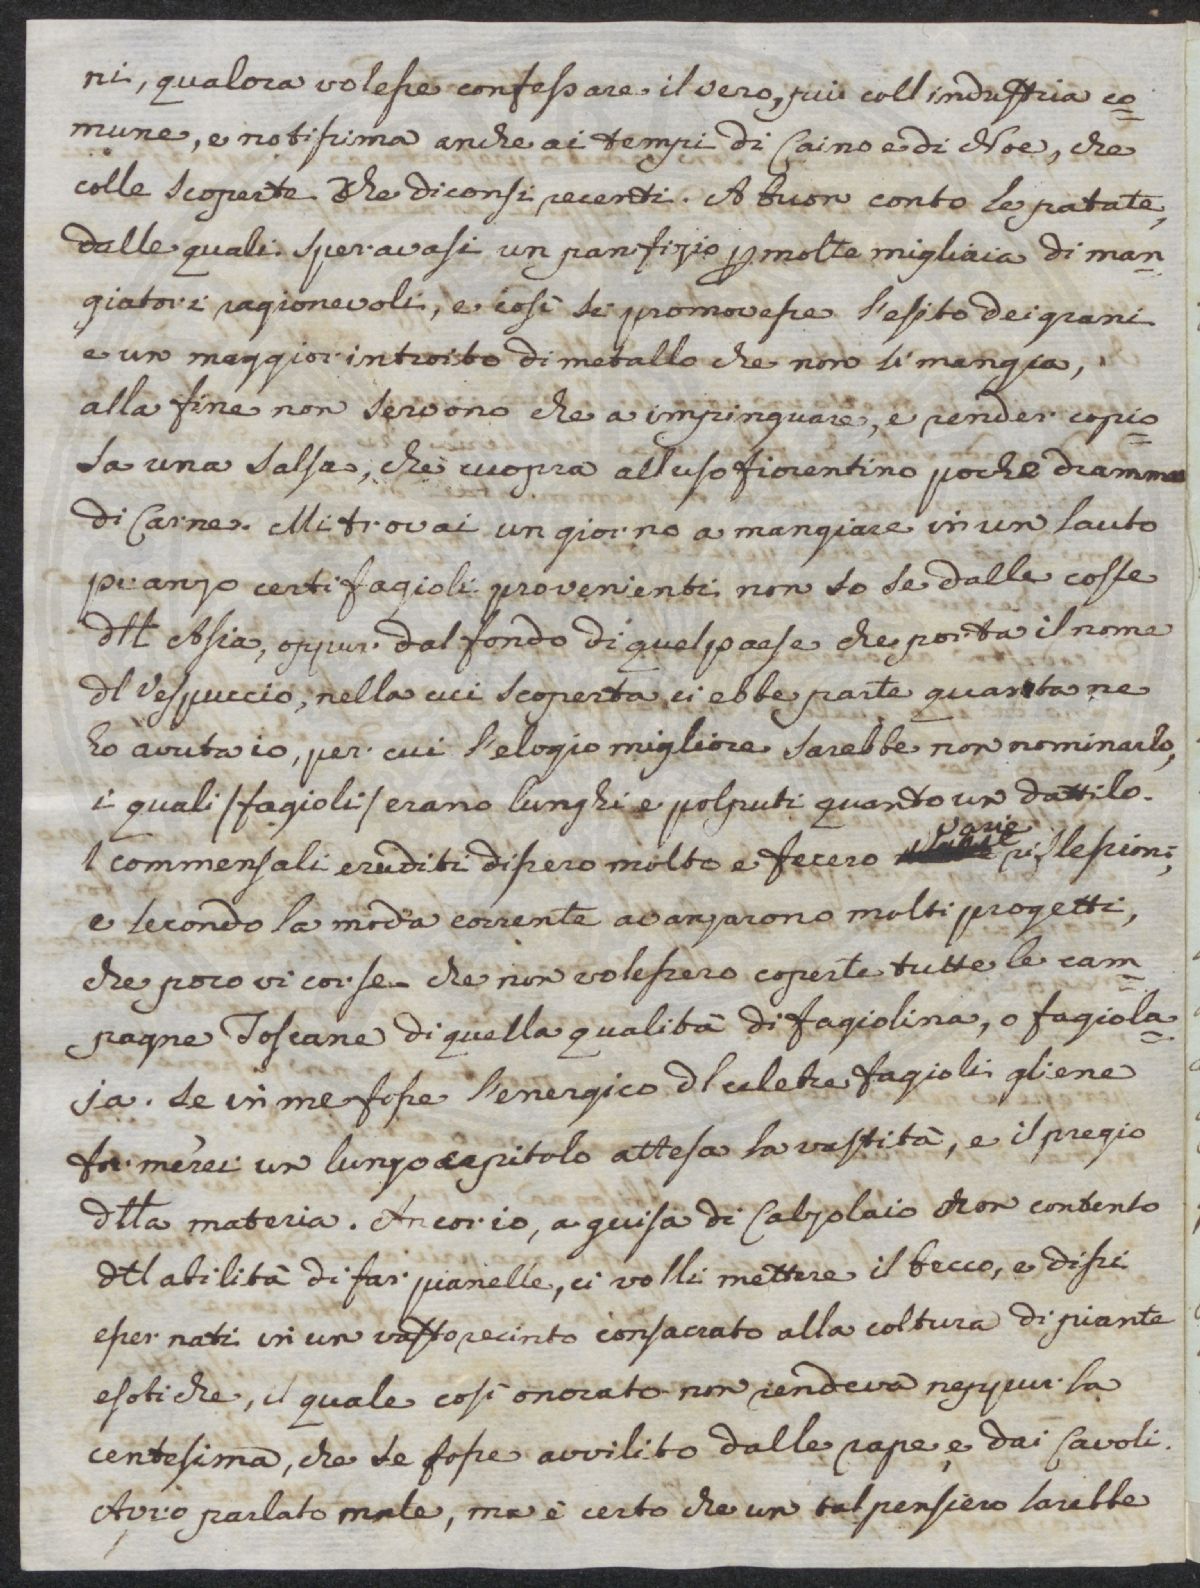 ni, qualora volesse confessare il vero, più coll industria co=
mune, e notissima anche ai tempi di Caino e di Noe, che
colle scoperte che diconsi recenti. A buon conto le patate,
dalle quali speravasi un panifizio p molte migliaia di man=
giatori ragionevoli, e così si promovesse l'esito dei grani
e un maggior introito di metallo che non si mangia,
alla fine non servono che a impinguare, e render copio=
sa una salsa, che cuopra all uso fiorentino poche dramme
di Carne. Mi trovai un giorno a mangiare in un lauto
pranzo certi fagioli provenienti non so se dalle coste
dll Asia, oppur dal fondo di quel paese che porta il nome
dl Vespuccio, nella cui scoperta ci ebbe parte quanta ne
ho avuta io, per cui l'elogio migliore sarebbe non nominarlo,
i quali /fagioli/ erano lunghi e polputi quanto un dattilo.
I commensali eruditi dissero molto e fecero varie riflessioni,
e secondo la moda corrente avanzarono molti progetti,
che poco vi corse che non volessero coperte tutte le cam=
pagne Toscane di quella qualità di fagiolina, o fagiola=
ja. Se in me fosse l'energico dl celebre fagioli gliene
formerei un lungo capitolo attesa la vastità, e il pregio
dlla materia. Ancor io, a guisa di Calzolaio non contento
dll abilità di far pianelle, ci volli mettere il becco, e dissi
esser nati in un vasto recinto consacrato alla coltura di piante
esotiche, il quale così onorato non rendeva neppur la
centesima, che se fosse avvilito dalle rape e dai Cavoli.
Avrò parlato male, ma è certo che un tal pensiero sarebbe